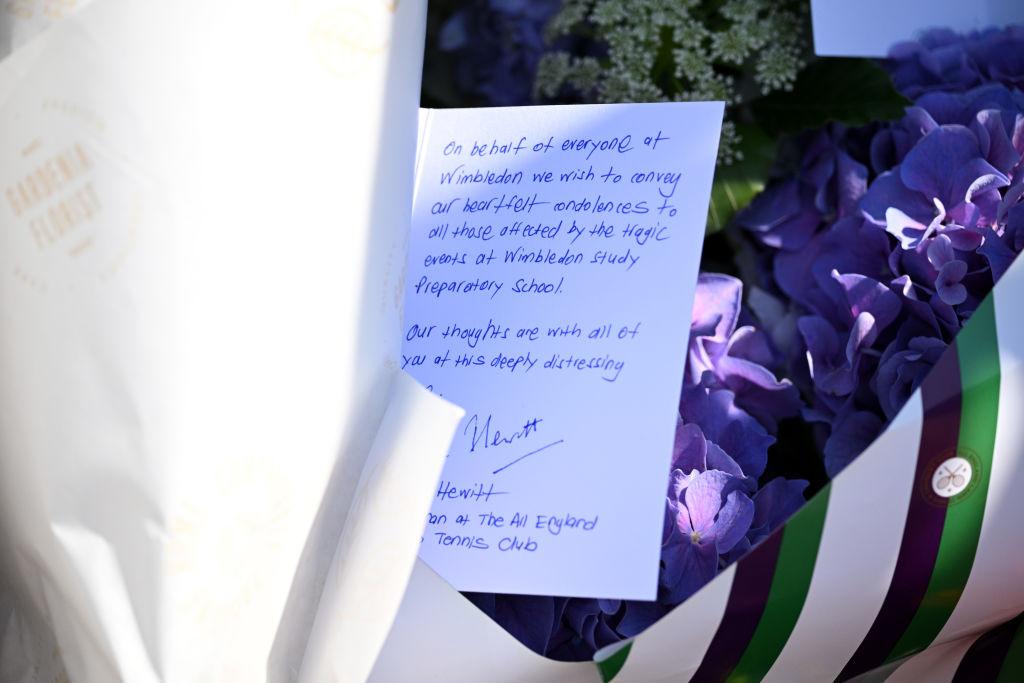 GARDENIA
FLORIST
On behalf of everyone at
Wimbledon we wish to convey
our heartfelt condolences to
all those affected by the tragic
events at Wimbledon study
Preparatory School.
Our thoughts are with all of
you at this deeply distressing
Hewitt
Hewitt
an at The All England
Tennis Club